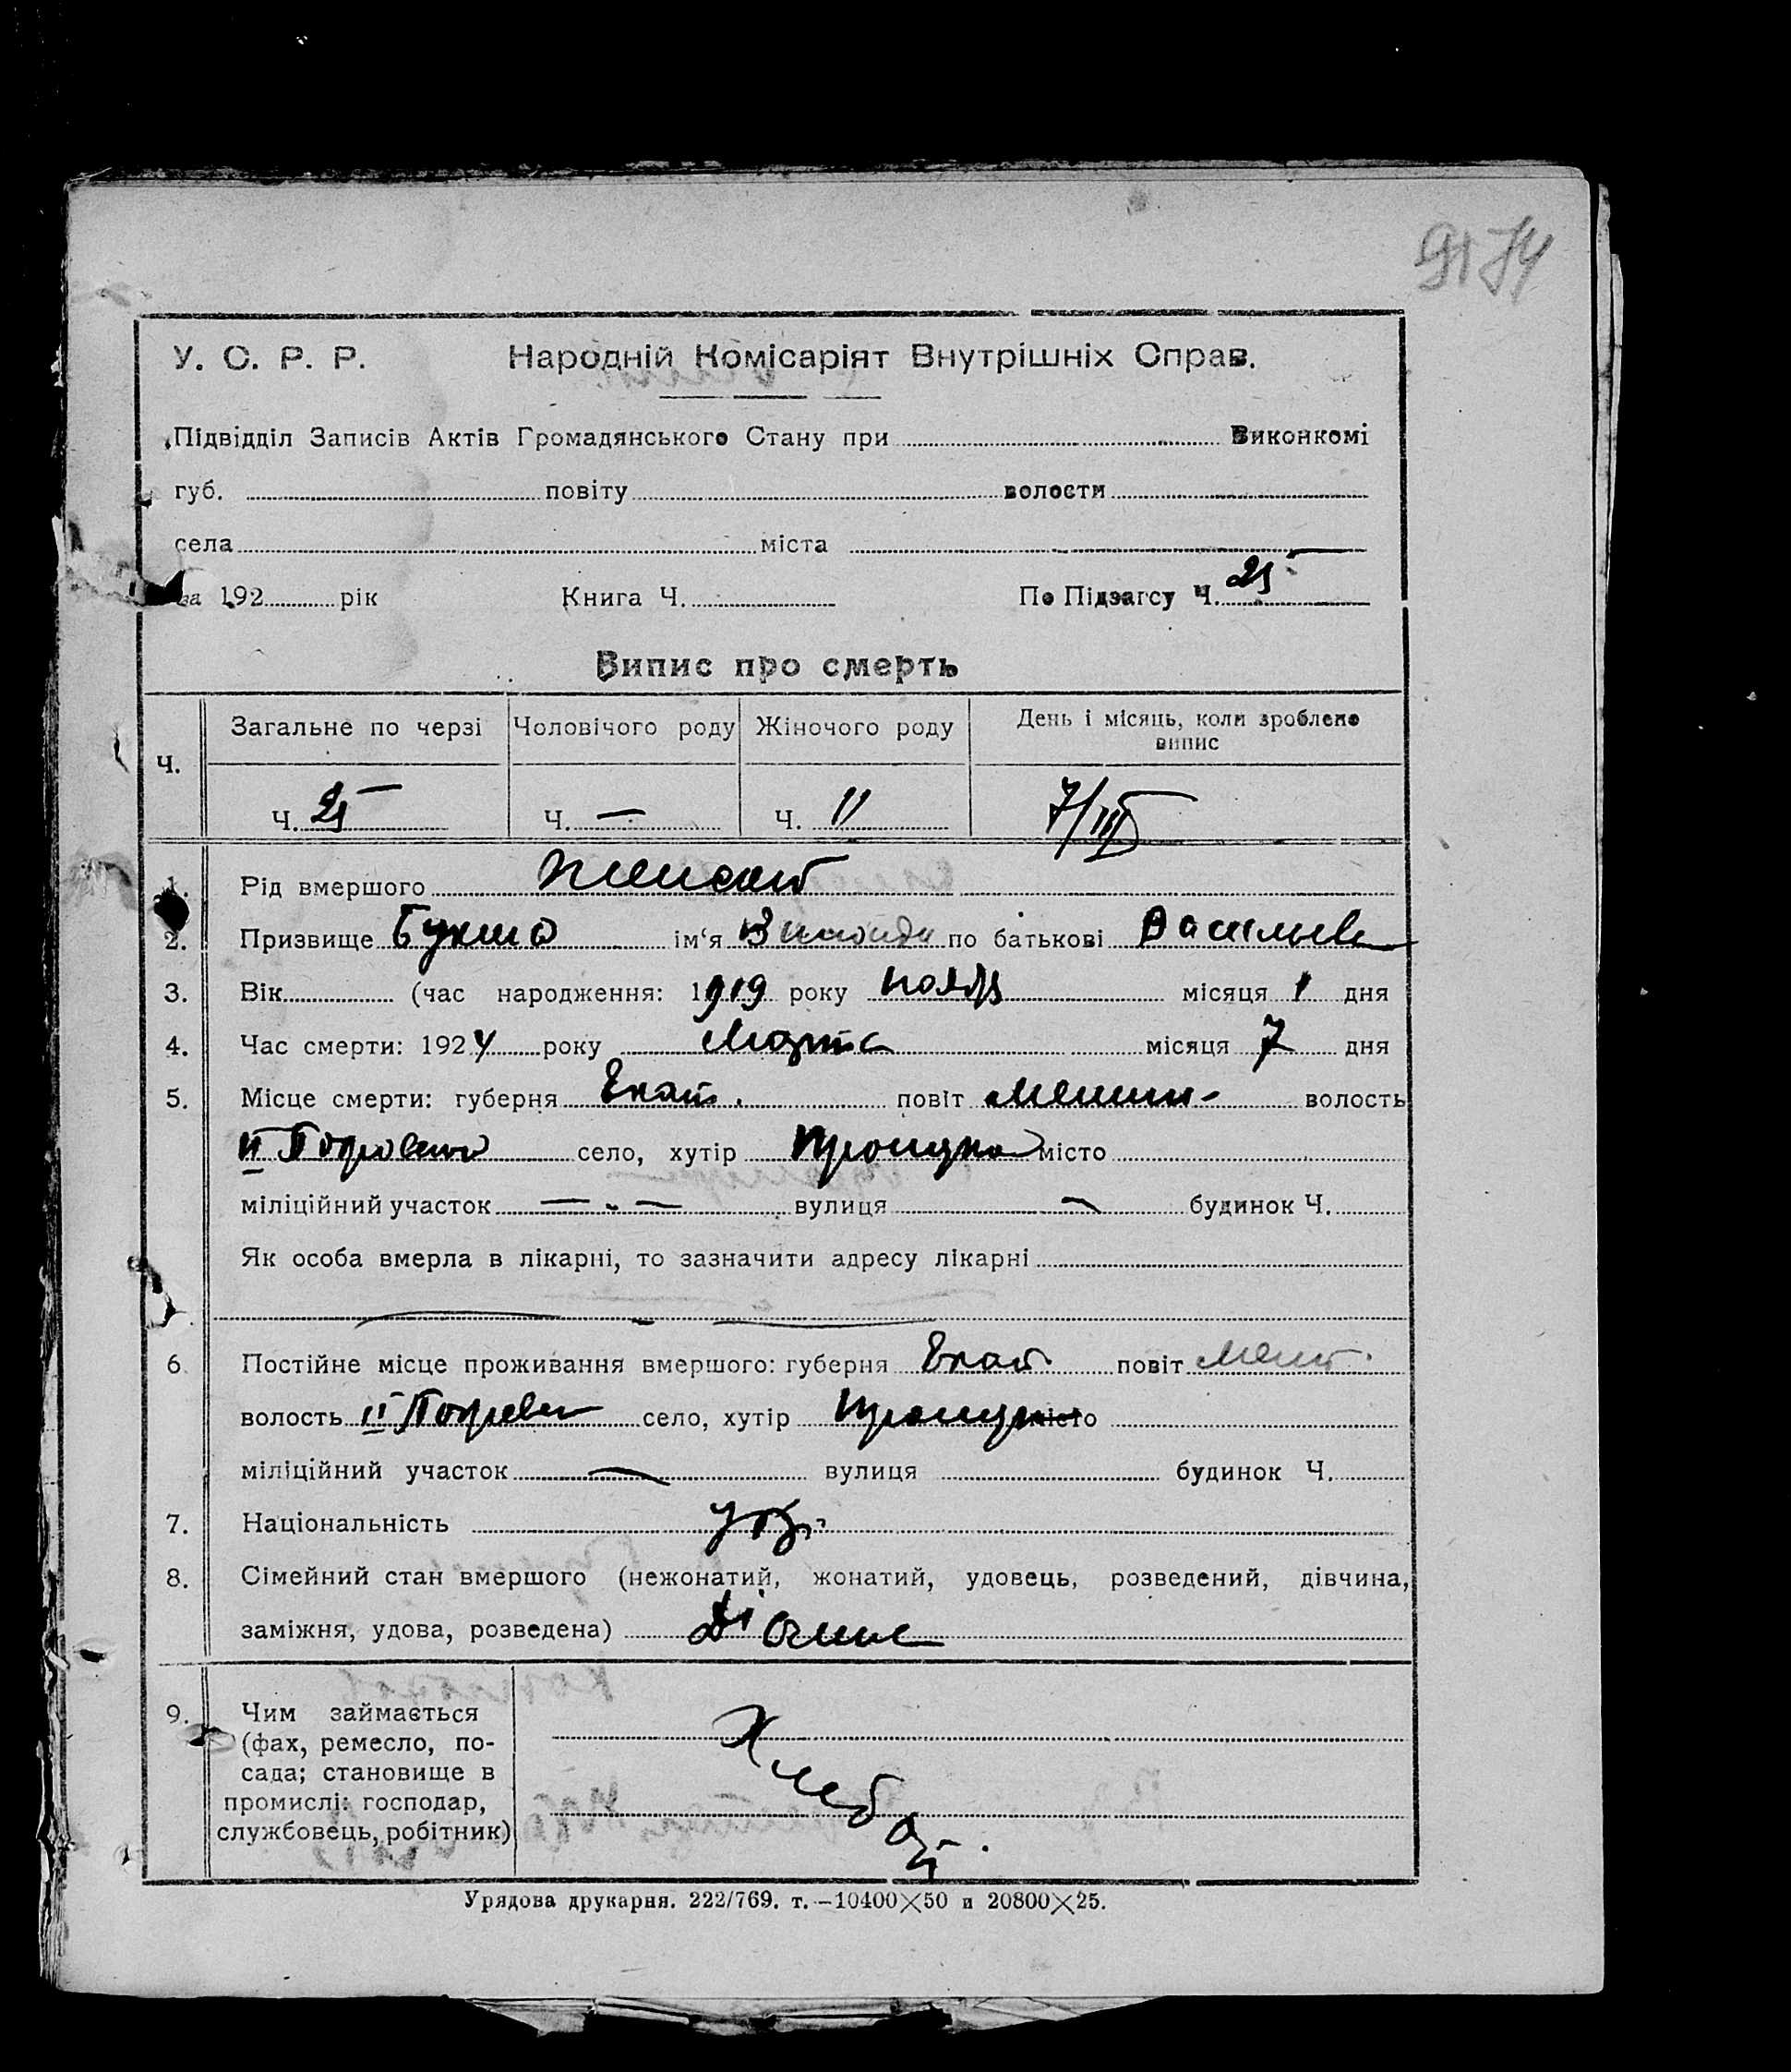 9174
У. С. Р. Р. Народній Комісаріят Внутрішніх Справ.
Підвідділ Записів Актів Громадянського Стану при Виконкомі
губ. повіту волости
села міста
за 192 рік Книга Ч. По Підзагсу Ч. 25
Випис про смерть
Ч. Загальне по черзі Чоловічого роду Жіночого роду День і місяць, коли зроблено випис
Ч. 25 Ч. — Ч. 11 7/III
1. Рід вмершого
2. Призвище ім‘я по батькові
3. Вік (час народження: 1919 року ноября місяця 1 дня
4. Час смерти: 1924 року Марта місяця 7 дня
5. Місце смерти: губерня Екат. повіт волость
II село, хутір місто
міліційний участок — . — вулиця — будинок Ч.
Як особа вмерла в лікарні, то зазначити адресу лікарні
6. Постійне місце проживання вмершого: губерня Екат. повіт
волость II село, хутір місто
міліційний участок — вулиця будинок Ч.
7. Національність Укр.
8. Сімейний стан вмершого (нежонатий, жонатий, удовець, розведений, дівчина,
заміжня, удова, розведена)
9. Чим займається
(фах, ремесло, по-
сада; становище в
промислі: господар,
службовець, робітник)
Урядова друкарня. 222/769. т.—10400×50 и 20800×25.